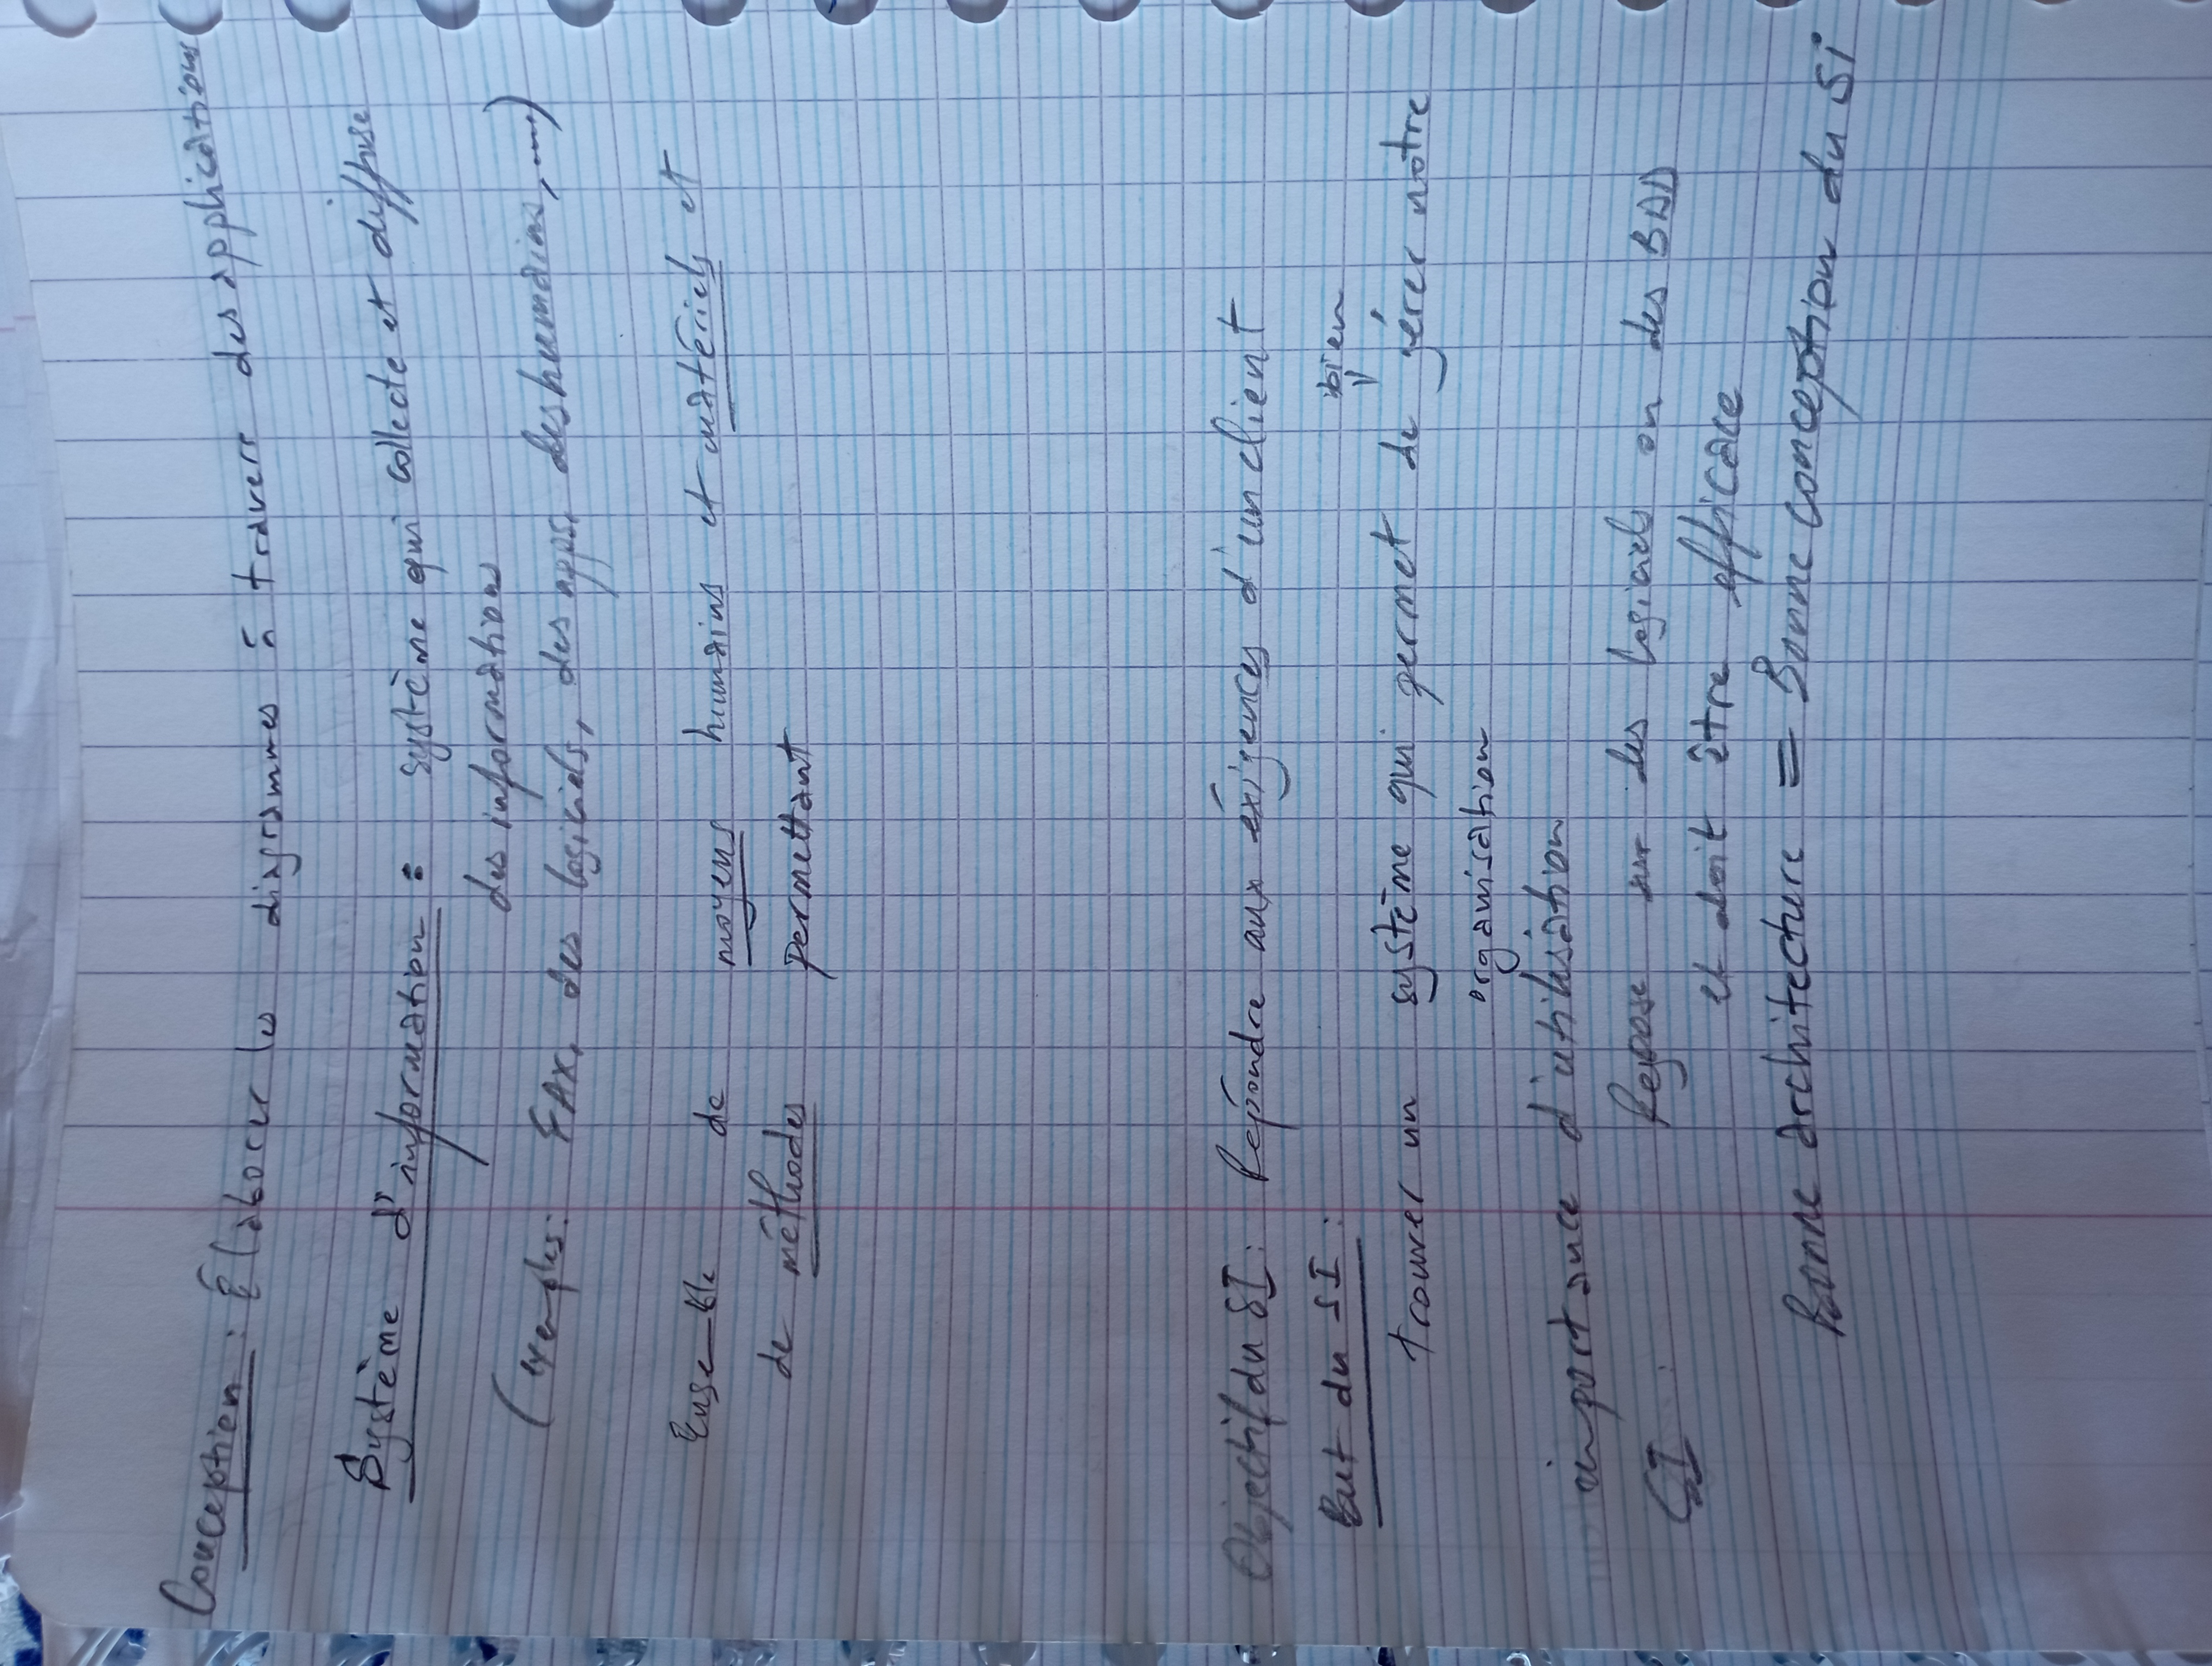 Conception : Élaborer les diagrammes à travers des applications
Système d'information : système qui collecte et diffuse
des informations
(exemples: FAX, des logiciels, des apps, des humains, ...)
Ensemble de moyens humains et matériels et
de méthodes permettant
Objectif du SI : Répondre aux exigences d'un client
But du SI :
bien
trouver un système qui permet de gérer notre
organisation
importance d'utilisation
SI : Repose sur des logiciels ou des BDD
et doit être efficace
Bonne architecture = Bonne conception du Si